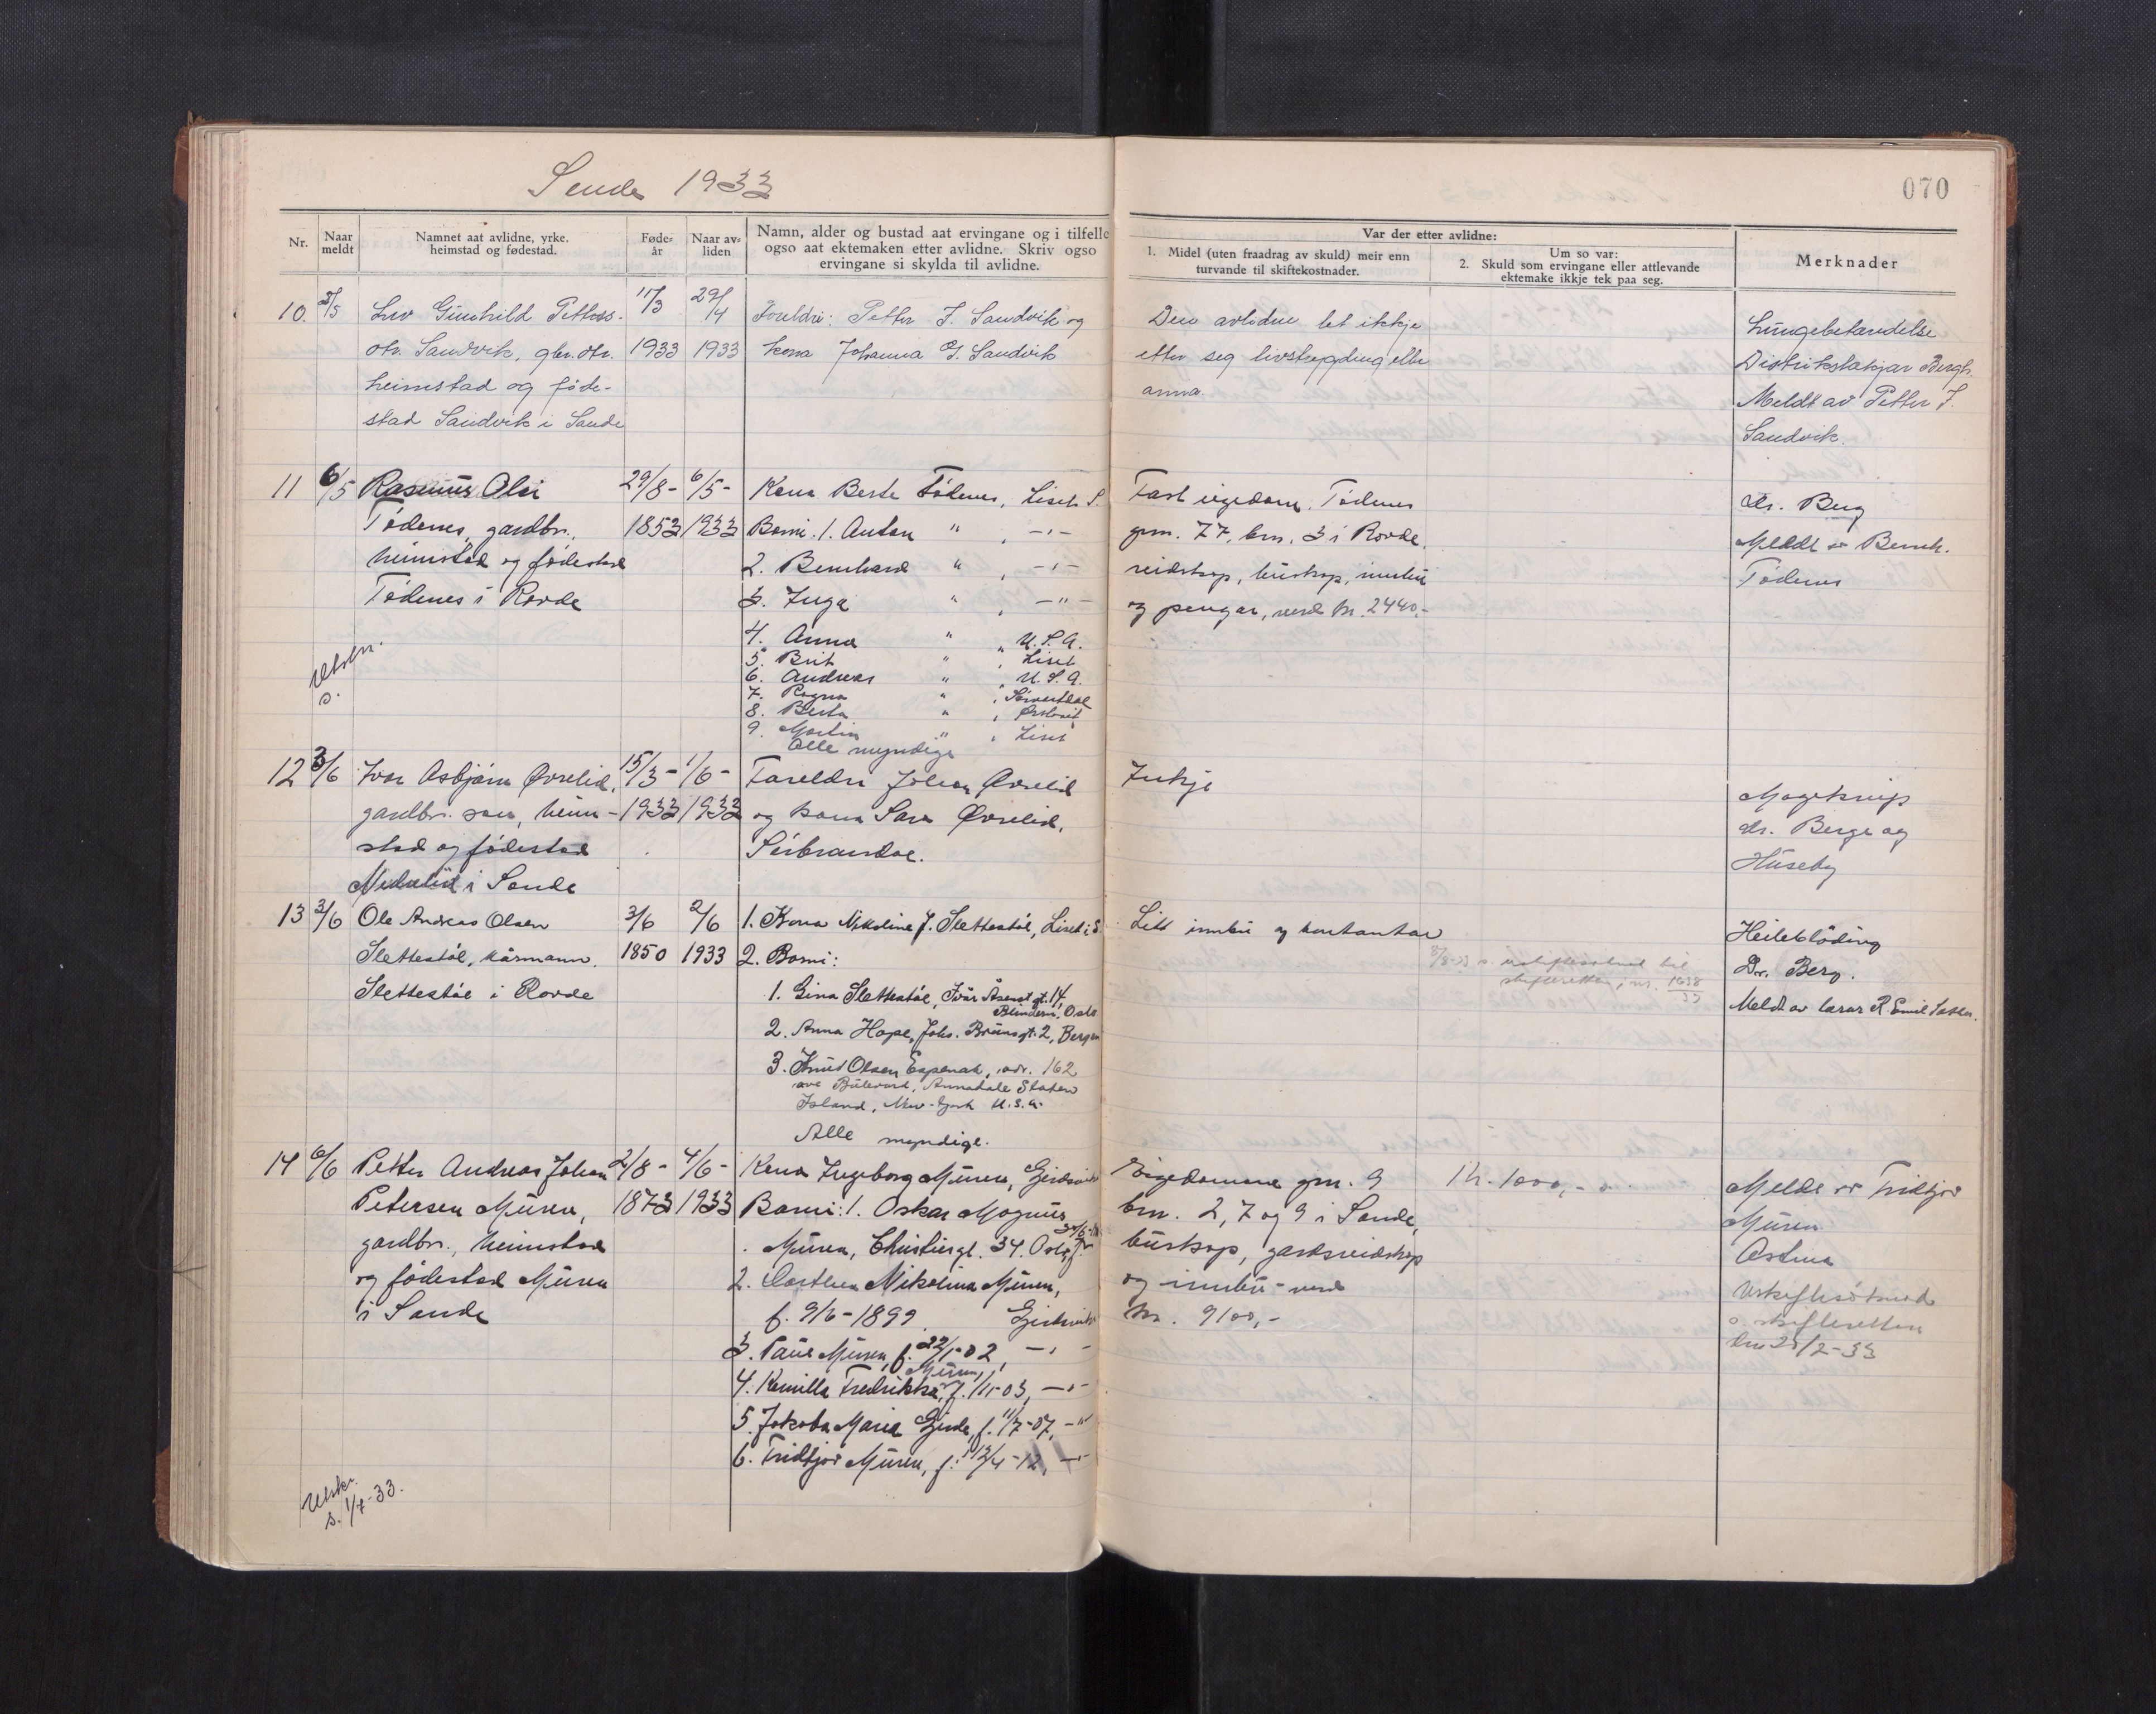 Sande 1933
070
Nr.
Naar meldt
Namnet aat avlidne, yrke.
heimstad og fødestad.
Føde-
år
Naar av-
liden
Namn, alder og bustad aat ervingane og i tilfelle
ogso aat ektemaken etter avlidne. Skriv ogso
ervingane si skylda til avlidne.
Var der etter avlidne:
1. Midel (uten fraadrag av skuld) meir enn
turvande til skiftekostnader.
Um so var:
2. Skuld som ervingane eller attlevande
ektemake ikkje tek paa seg.
Merknader
10. 3/5 Liv Gunhild Petters-
dtr. Sandvik, gbr. dtr.
heimstad og føde-
stad Sandvik i Sande
11/3
1933
29/4
1933
Foreldri: Petter J. Sandvik og
kona Johanna Sandvik
Den avlidne let ikkje
etter seg livstrygding eller
anna.
Lungebetendelse
Distriktslækjar Bergh.
Meldt av Petter J.
Sandvik.
11 6/5 Rasmus Olai
Tødenes, gardbr.,
heimstad og fødestad
Tødenes i Rovde
29/8-
1853
6/5-
1933
Kona Berte Tødenes, Liset S.
Borni. 1. Anton " , -"-
2. Bernhard " , -"-
3. Inga " , -"-
4. Anna " , U.S.A.
5. Brit " , Liset
6. Andreas " , U.S.A.
7. Ragna " ,
8. Berta " ,
9. Martin " , Liset
Alle myndige
Fast eigedom. Tødenes
gnr. 77, bnr. 3 i Rovde,
reidskap, buskap, innbu
og pengar, verd kr. 2440,-
dr. Berg
Meldt av Bernh.
Tødenes
Utskr.
s.
12 3/6 Ivar Asbjørn Øvrelid,
gardbr. son, heim-
stad og fødestad
i Sande
15/3-
1933
1/6-
1933
Foreldri Johan Øvrelid
og kona Sara Øvrelid,
Sørbrandal.
Inkje
Mageknip
dr. Berge og
Huseby
13 3/6 Ole Andreas Olsen
Slettestøl, kårmann.
Slettestøl i Rovde
3/6
1850
2/6
1933
1. Kona Nikoline J. Slettestøl, Liset i S.
2. Borni:
1. Gina Slettestøl, Ivar Åsensgt. 14,
Blindern, Oslo
2. Anna Hope, Johs. Brunsgt. 2, Bergen
3. Knud Olsen Espenak, adr. 162
ave Bulevard, Annadale Staten
Island, New-York U.S.A.
Alle myndige.
Litt innbu og kontantar
skifteretten, nr. 1638/33
Heileblöding
Dr. Berg.
Meldt av lærar R. Emil
14 6/6 Petter Andreas Johan
Petersen Muren,
gardbr., heimstad
og fødestad Muren
i Sande
2/8-
1873
4/6-
1933
Kona Ingeborg Muren, Gjerdsvika
Borni: 1. Oskar Magnus
Muren, Christiesgt. 34. Oslo, f.
2. Dorthea Nikolina Muren,
f. 9/6-1899. Gjerdsvika
3. Paul Muren, f. 22/1-02, -"-
4. Kamilla Fredrikka Muren, f. 1/11-03, -"-
5. Jakoba Maria Gjerde, f. 11/7-07, -"-
6. Fridtjov Muren, f. 13/4-12, -"-
Eigedomane gnr. 9
bnr. 2, 7 og 9 i Sande,
buskap, gardsreidskap
og innbu - verd
kr. 9100,-
Kr. 1000,-
Meldt av Fridtjov
Muren
Astma
Uskifteløknad
s. skifteretten
Utskr.
s. 1/7-33.